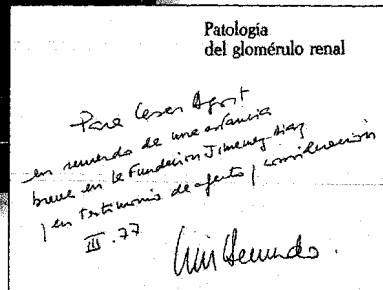 Patología
del glomérulo renal
Para Cesar Agost
en recuerdo de una estancia
breve en la Fundacion Jimenez Diaz
y en testimonio de afecto y consideración
III.77
Luis Hernando.